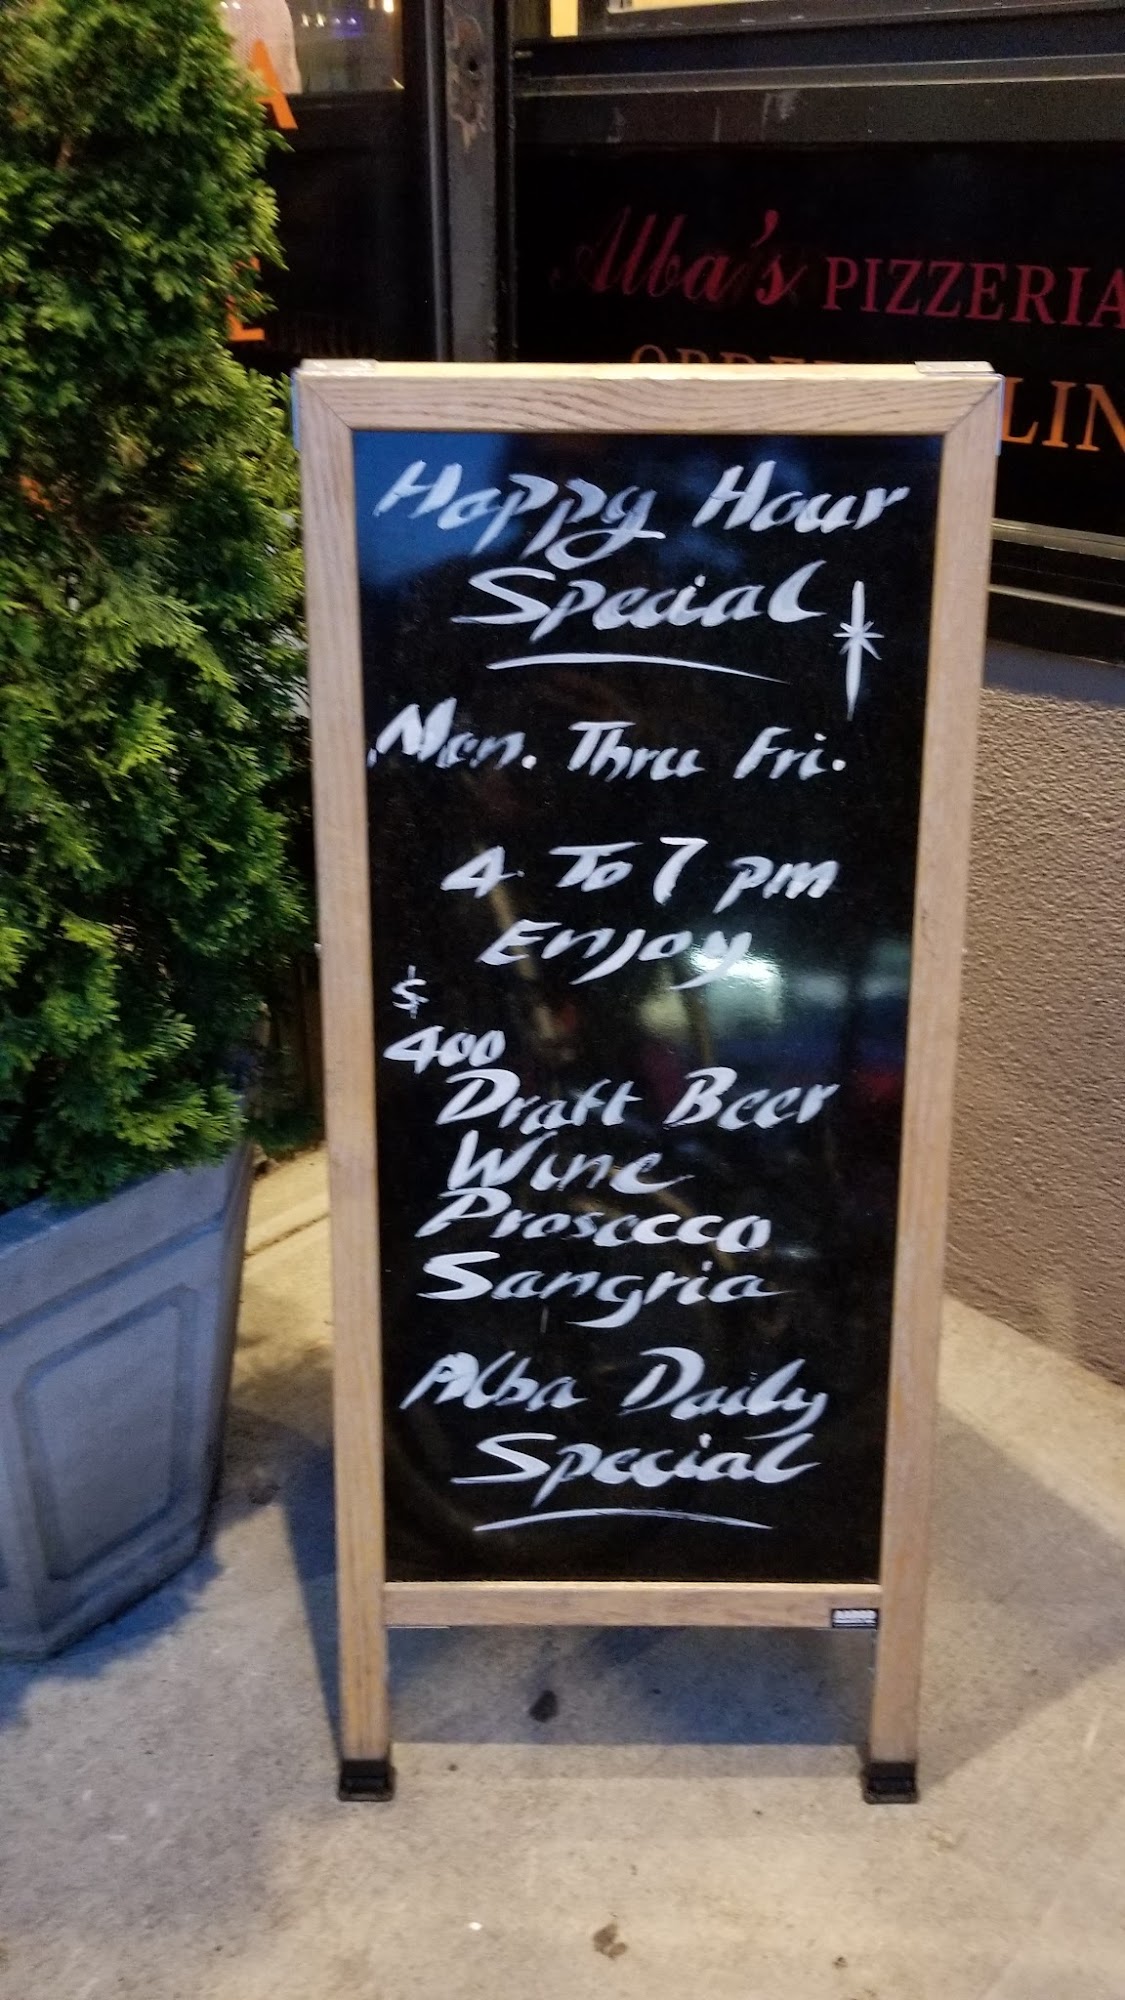 A
Alba's PIZZERIA
LIN
Happy Hour
Special
Mon. Thru Fri.
4 To 7 pm
Enjoy
$
400
Draft Beer
Wine
Prosecco
Sangria
Alba Daily
Special